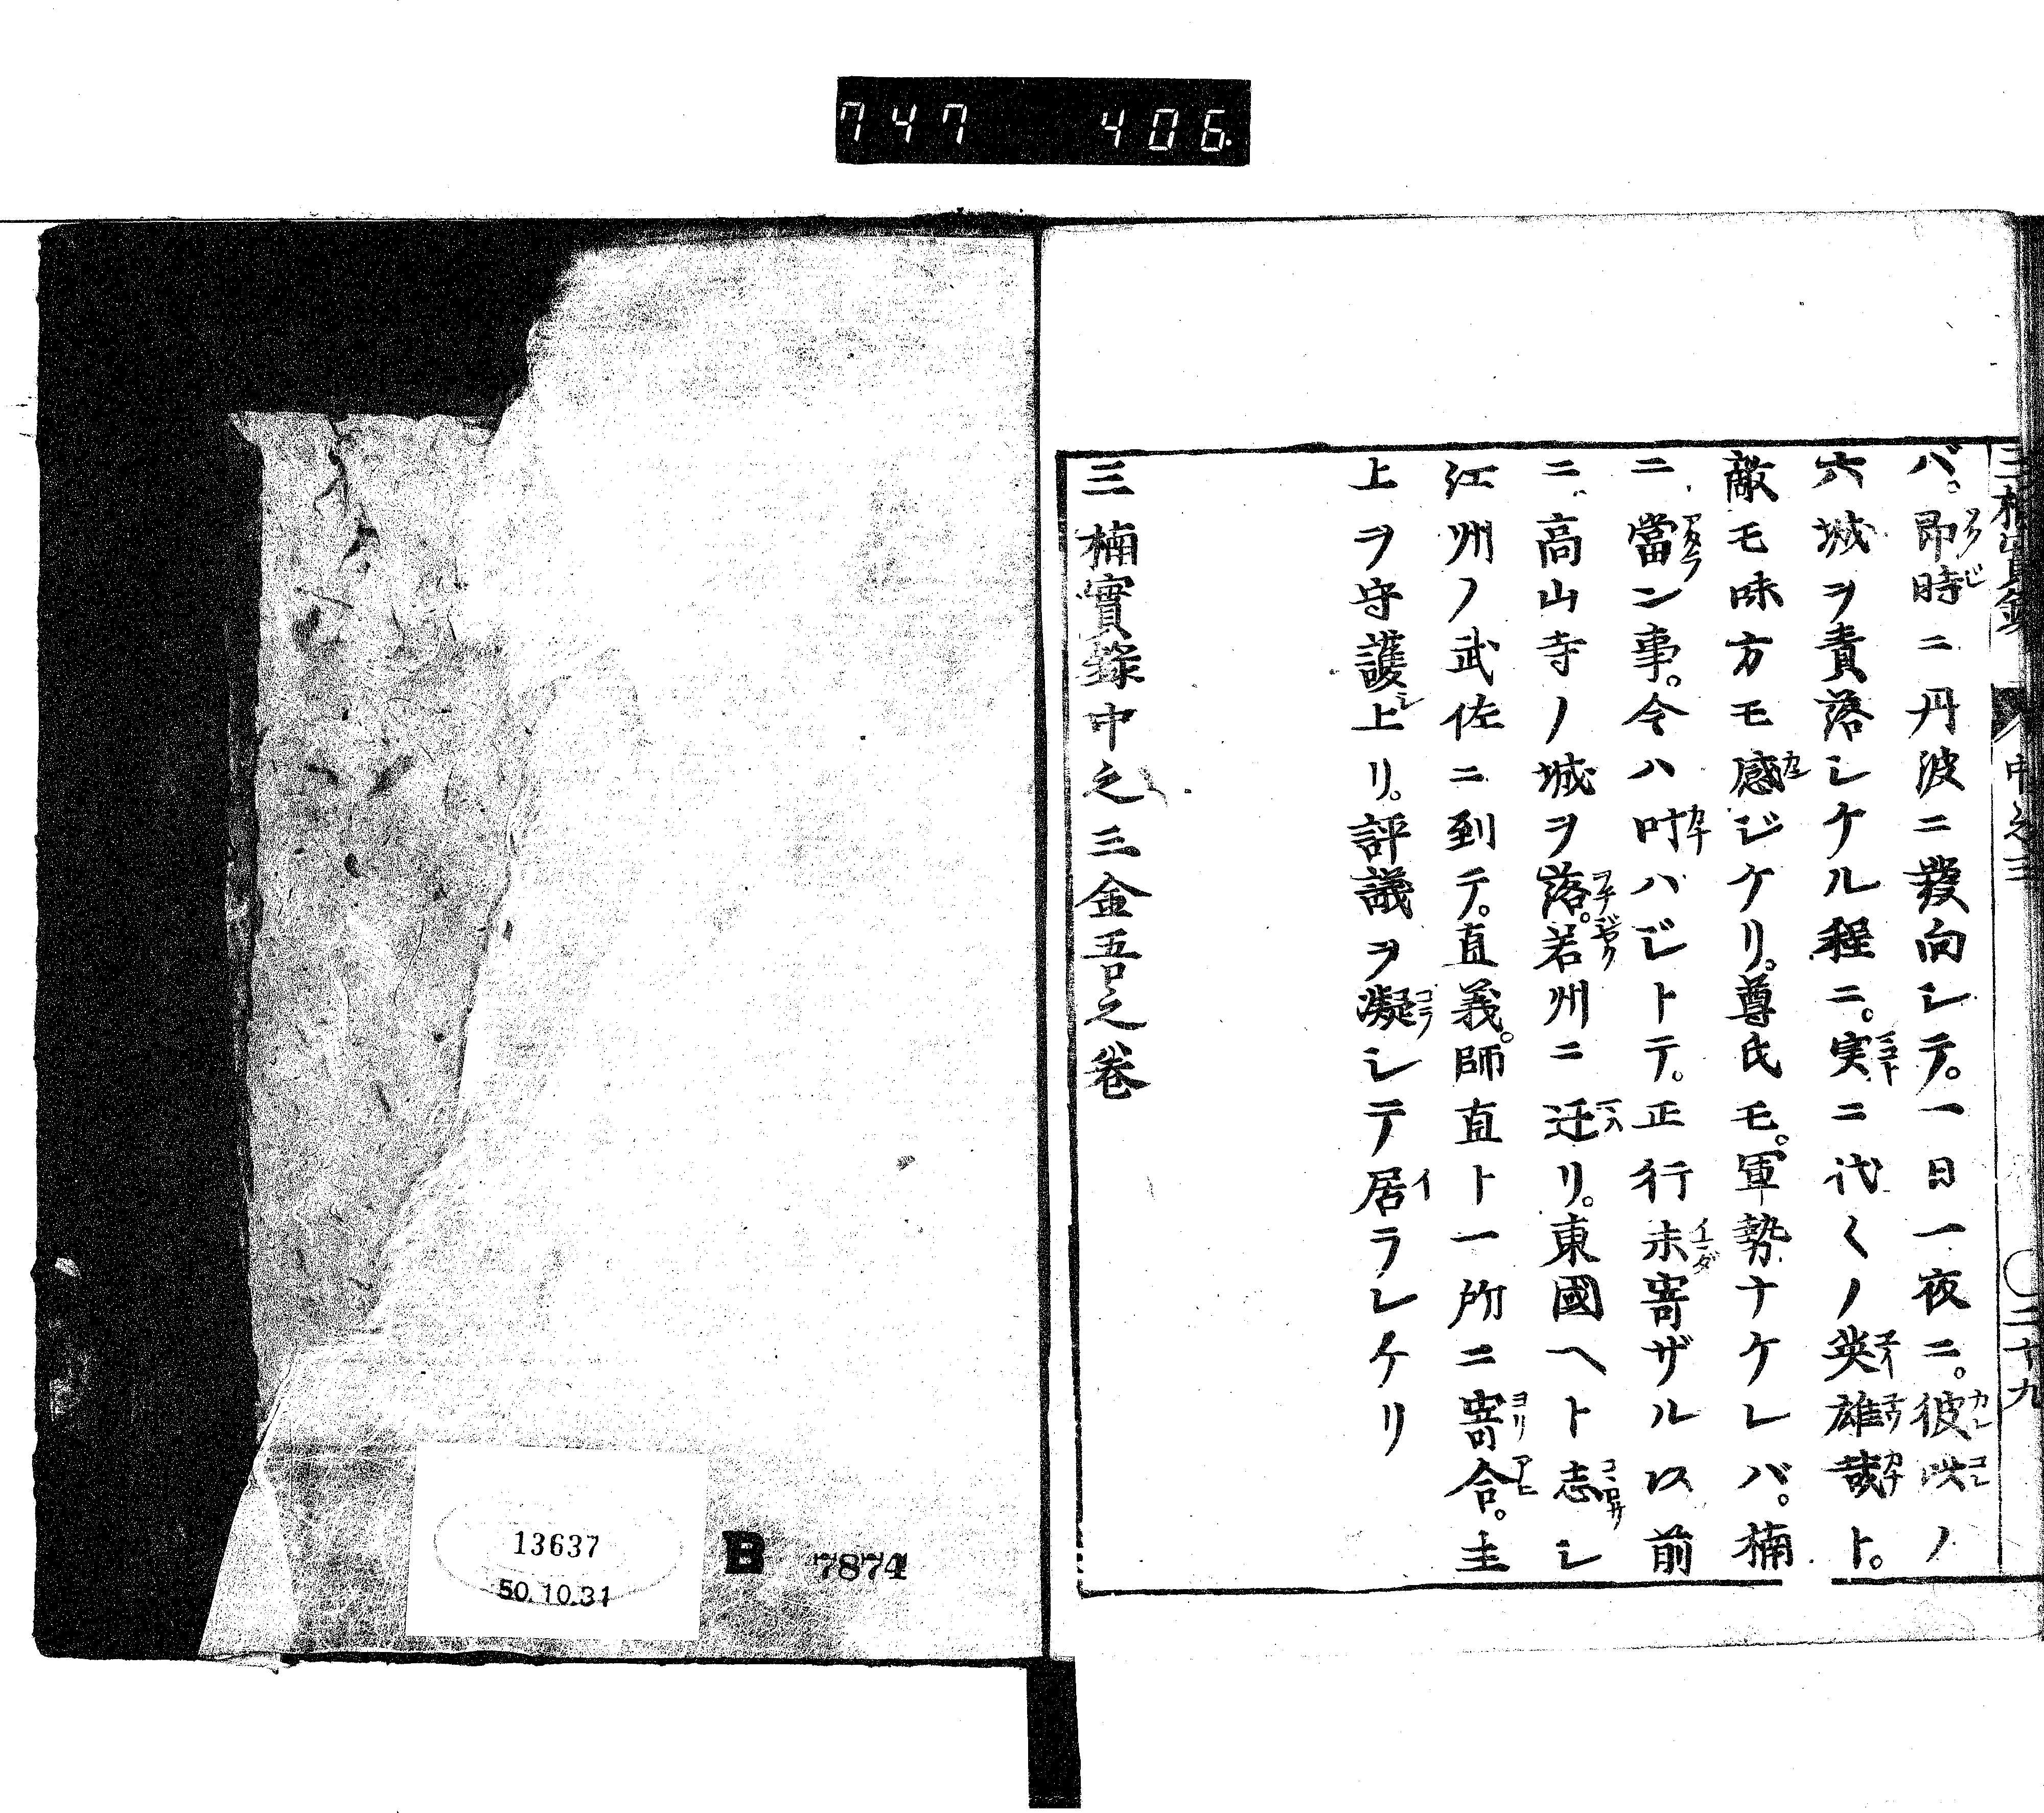 747 406
バ。即時ニ丹波ニ發向シテ。一日一夜ニ。彼此ノ
六城ヲ責落シケル程ニ。実ニ代〱ノ英雄哉ト。
敵モ味方モ感ジケリ。尊氏モ。軍勢ナケレバ。楠
ニ當ン事。今ハ叶ハジトテ。正行未寄ザル以前
ニ。高山寺ノ城ヲ落。若州ニ迁リ。東國ヘト志シ
江州ノ武佐ニ到テ。直義。師直ト一所ニ寄合。主
上ヲ守護シ上リ。評議ヲ凝シテ居ラレケリ
三楠實録中之三金吾之巻
13637
50.10.31
B 7874